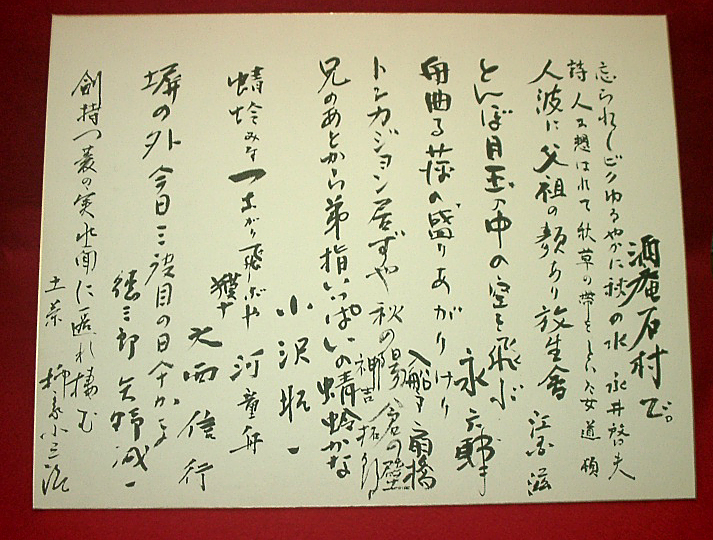 酒庵石村で。
忘られしビクゆるやかに秋の水 永井啓夫
詩人と想はれて秋草の帯をとい 女道 頓
人波に父祖の顔あり放生會 江國滋
とんぼ目玉の中の空を飛ぶ 永六輔
舟曲る 盛りあがりけり 入船亭扇橋
トンカジョン居ずや秋の陽倉の壁 神吉拓郎
兄のあとから弟指いっぱいの蜻蛉かな 小沢昭一
蜻蛉みな一 がり飛しぶや 河童舟
獏十 大西信行
塀の外今日三度目の日 かな
徳三郎 矢野誠一
剣持つ菱の実水面に匿れ棲む
土茶 柳家小三治